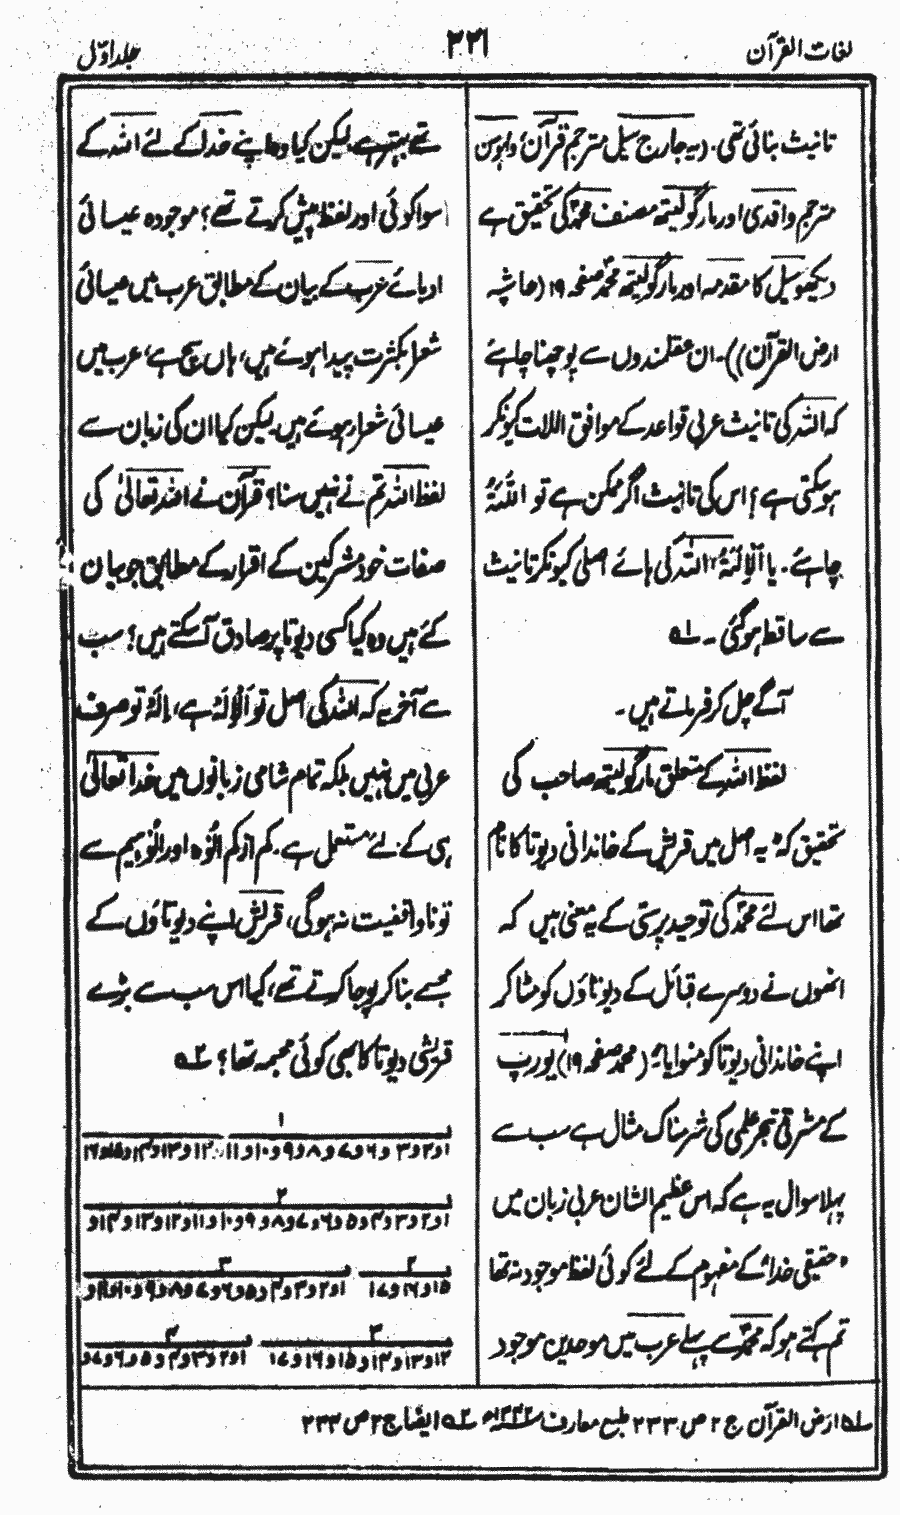 لغات القرآن
۲۲۱
جلد اوّل
تانیث بنائی تھی۔ (دیہ جارج سیل مترجم قرآن ولوسن
مترجم واقدی اور مارگولیتھ مصنف محمدؐ کی تحقیق ہے
دیکھو سیل کا مقدمہ اور مارگولیتھ محمدؐ صفحہ ۱۹ (حاشیہ
ارض القرآن))۔ ان عقلمندوں سے پوچھنا چاہئے
کہ اللہ کی تانیث عربی قواعد کے موافق اللات کیونکر
ہوسکتی ہے؟ اس کی تانیث اگر ممکن ہے تو اَللّٰهَةُ
چاہئے۔ یا اَلْاِلٰهَةُ، اللہ کی ہائے اصلی کیونکر تانیث
سے ساقط ہوگئی ۔ ۱ھ
آگے چل کر فرماتے ہیں ۔
لفظ اللہ کے متعلق مارگولیتھ صاحب کی
تحقیق کہ "یہ اصل میں قریش کے خاندانی دیوتا کا نام
تھا اس لئے محمدؐ کی توحید پرستی کے یہ معنی ہیں کہ
انھوں نے دوسرے قبائل کے دیوتاؤں کو مٹا کر
اپنے خاندانی دیوتا کو منوایا" (محمدؐ صفحہ ۱۹) یورپ
کے مشرقی تبحر علمی کی شرمناک مثال ہے سب سے
پہلا سوال یہ ہے کہ اس عظیم الشان عربی زبان میں
"حقیقی خدا" کے مفہوم کے لئے کوئی لفظ موجود نہ تھا
تم کہتے ہو کہ محمدؐ سے پہلے عرب میں موحدین موجود
تھے بہتر ہے، لیکن کیا وہ اپنے خدا کے لئے اللہ کے
سوا کوئی اور لفظ پیش کرتے تھے؟ موجودہ عیسائی
ادبائے عرب کے بیان کے مطابق عرب میں عیسائی
شعرا بکثرت پیدا ہوئے ہیں، ہاں سچ ہے، عرب میں
عیسائی شعراء ہوئے ہیں۔ لیکن کیا ان کی زبان سے
لفظ اللہ تم نے نہیں سنا؟ قرآن نے اللہ تعالیٰ کی
صفات خود مشرکین کے اقرار کے مطابق جو بیان
کئے ہیں وہ کیا کسی دیوتا پر صادق آسکتے ہیں؟ سب
سے آخر یہ کہ اللہ کی اصل تو اَلْاِلٰهُ ہے، اِلٰهٌ تو صرف
عربی میں نہیں بلکہ تمام شامی زبانوں میں خدا تعالیٰ
ہی کے لئے مستعمل ہے۔ کم از کم الُوْہ اور الُوہیم سے
تو ناواقفیت نہ ہوگی، قریش اپنے دیوتاؤں کے
مجسمے بنا کر پوجا کرتے تھے، کیا اس سب سے بڑے
قریشی دیوتا کا بھی کوئی مجسمہ تھا؟ ۲ھ
۱
۱و۲و۳ و ۴و ۷ و ۸و۹و ۱۰و ۱۱و ۱۲و ۱۳و ۱۴و۱۵و۱۶
۲
۱و ۲و ۳و ۴و ۵و ۶و ۷و ۸و ۹و ۱۰و ۱۱و ۱۲و ۱۳و ۱۴و
۲
۱۵و۱۶و ۱۷
۳
۱و۲و۳و ۴و ۵و ۶و ۷و ۸و ۹و ۱۰و۱۱و
۳
۱۲و۱۳و ۱۴و ۱۵و ۱۶و ۱۷
۴
۱و ۲و ۳و ۴و ۵و ۶و ۷و
۱ھ ارض القرآن ج ۲ ص ۲۳۳ طبع معارف ۱۳۴۲ھ ۲ھ ایضًا ج ۲ ص ۲۳۴